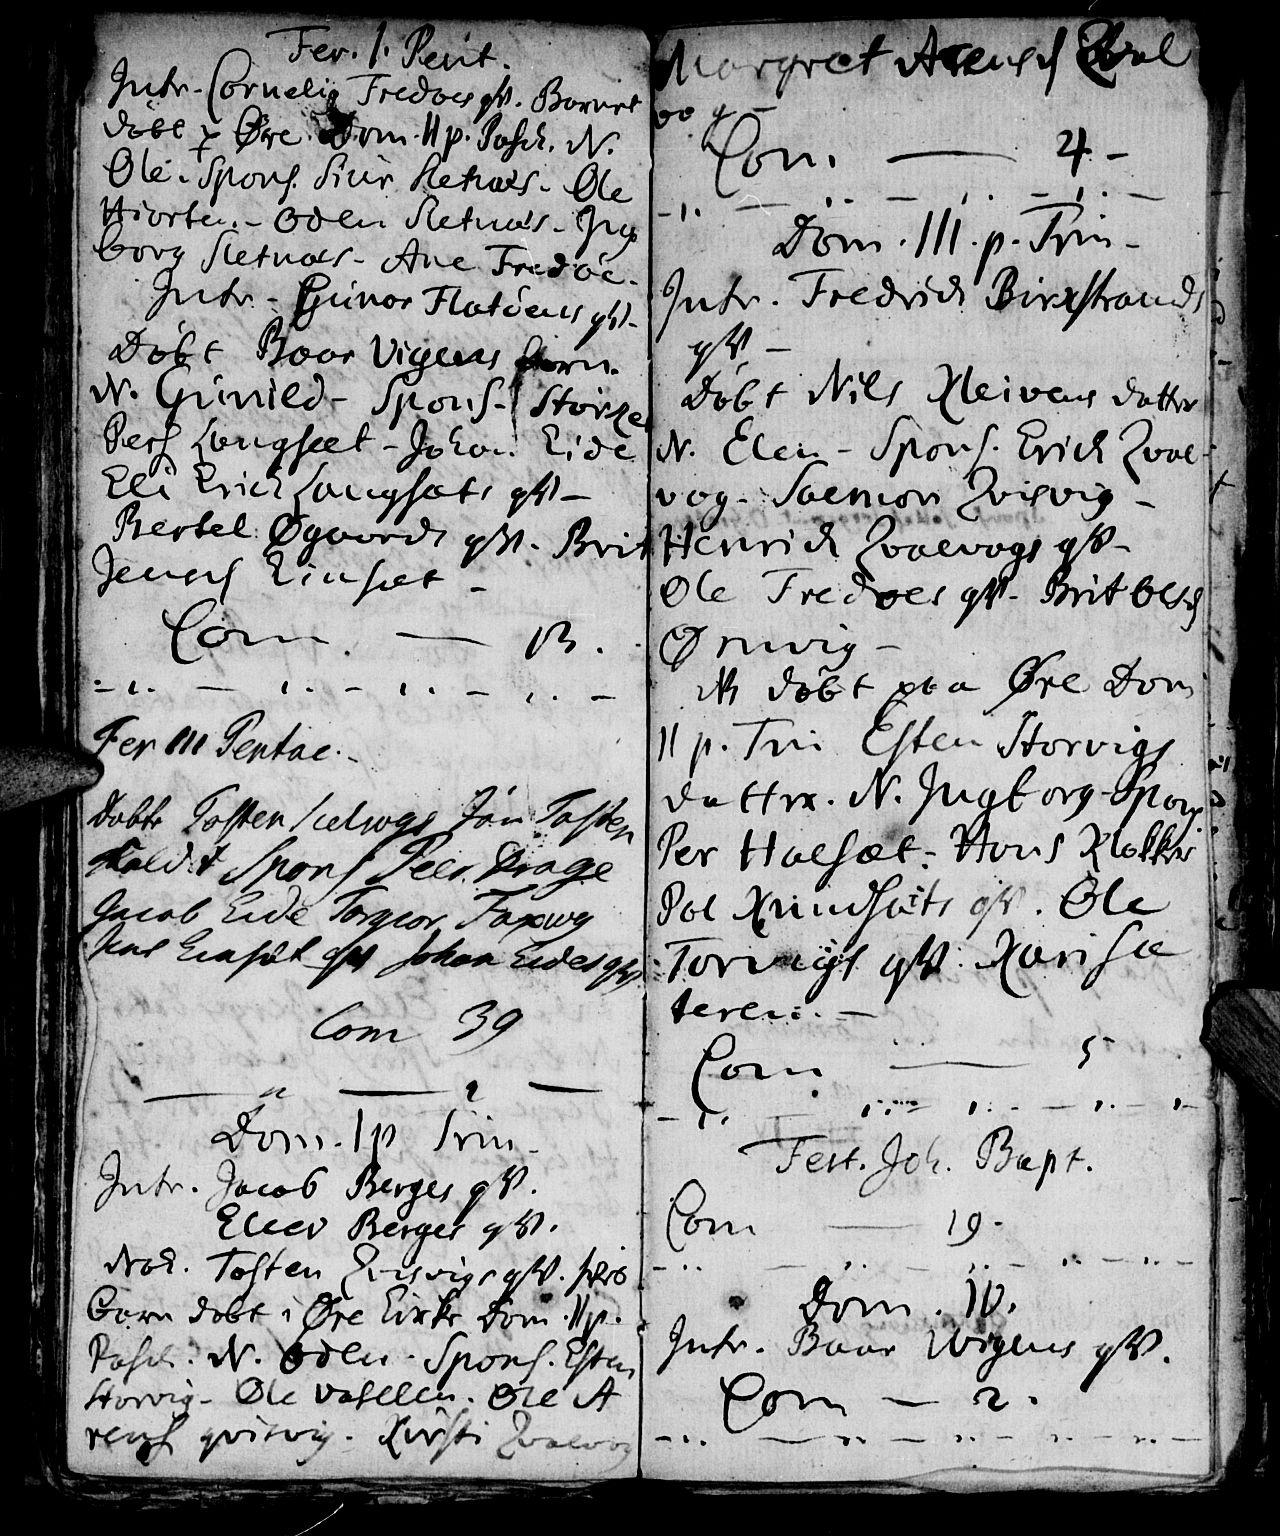 Fer. 1. Pent.
Intr. Cornelig Fredøes qv. Barnet
döbt p Øre Dom. II p. Pasch. N.
Ole. Spons. Siur Sletnæs. Ole
Hiorten. Oden Sletnæs. Ing
borg Sletnæs - Ane Fredöe.
Intr. Gunor Flatöens qv.
Döbt Baar Vigens barn.
N. Gunild - Spons. Störke
Pers Langsæt - Johan Eide
Eli Erich Langsæts qv -
Bertel Øgaards qv. Brit
Jensd Einset -
Com. — 13.
Fer III Pentac.
Dobte Tosten Juan Tosten
kaldet Spons Peer Drage
Jacob Eide Torger Faxvog
Einset qv Johan Eides qv
Com 39
Dom. 1 p Trin -
Intr. Jacob Berges qv.
Elias Berges qv.
Nok. Tosten Qvisvigs qv.
barn dobt i Øre Kirke Dom. II p.
Pasch. N. Oden - Spons. Esten
Storvig - Ole Vatellen. Ole A
renss qvisvig. Kirsti Qvalvog
Margret Arensd Qval
vog -
Com. — 4 -
Dom. III. p. Trin -
Intr. Fredrich Birxstrands
qv -
Döbt Nils Kleivens datter
N. Elen - Spons. Erich Qval-
vog - Salmon Qvisvig -
Henrich Qvalvogs qv -
Ole Fredøes qv - Brit Olsd
Ørnvig -
N döbt paa Øre Dom
II p. Tri Esten Storvigs
datter. N. Ingborg - Spons
Per Halsæt - Hans Klokker
Pol Knudsæts qv. Ole
Torvigs qv. Kari Sæ
teren. -
Com — 5
Fest. Joh. Bapt.
Com — 19 -
Dom. IV.
Intr. Baar Wigens qv.
Com — 2.